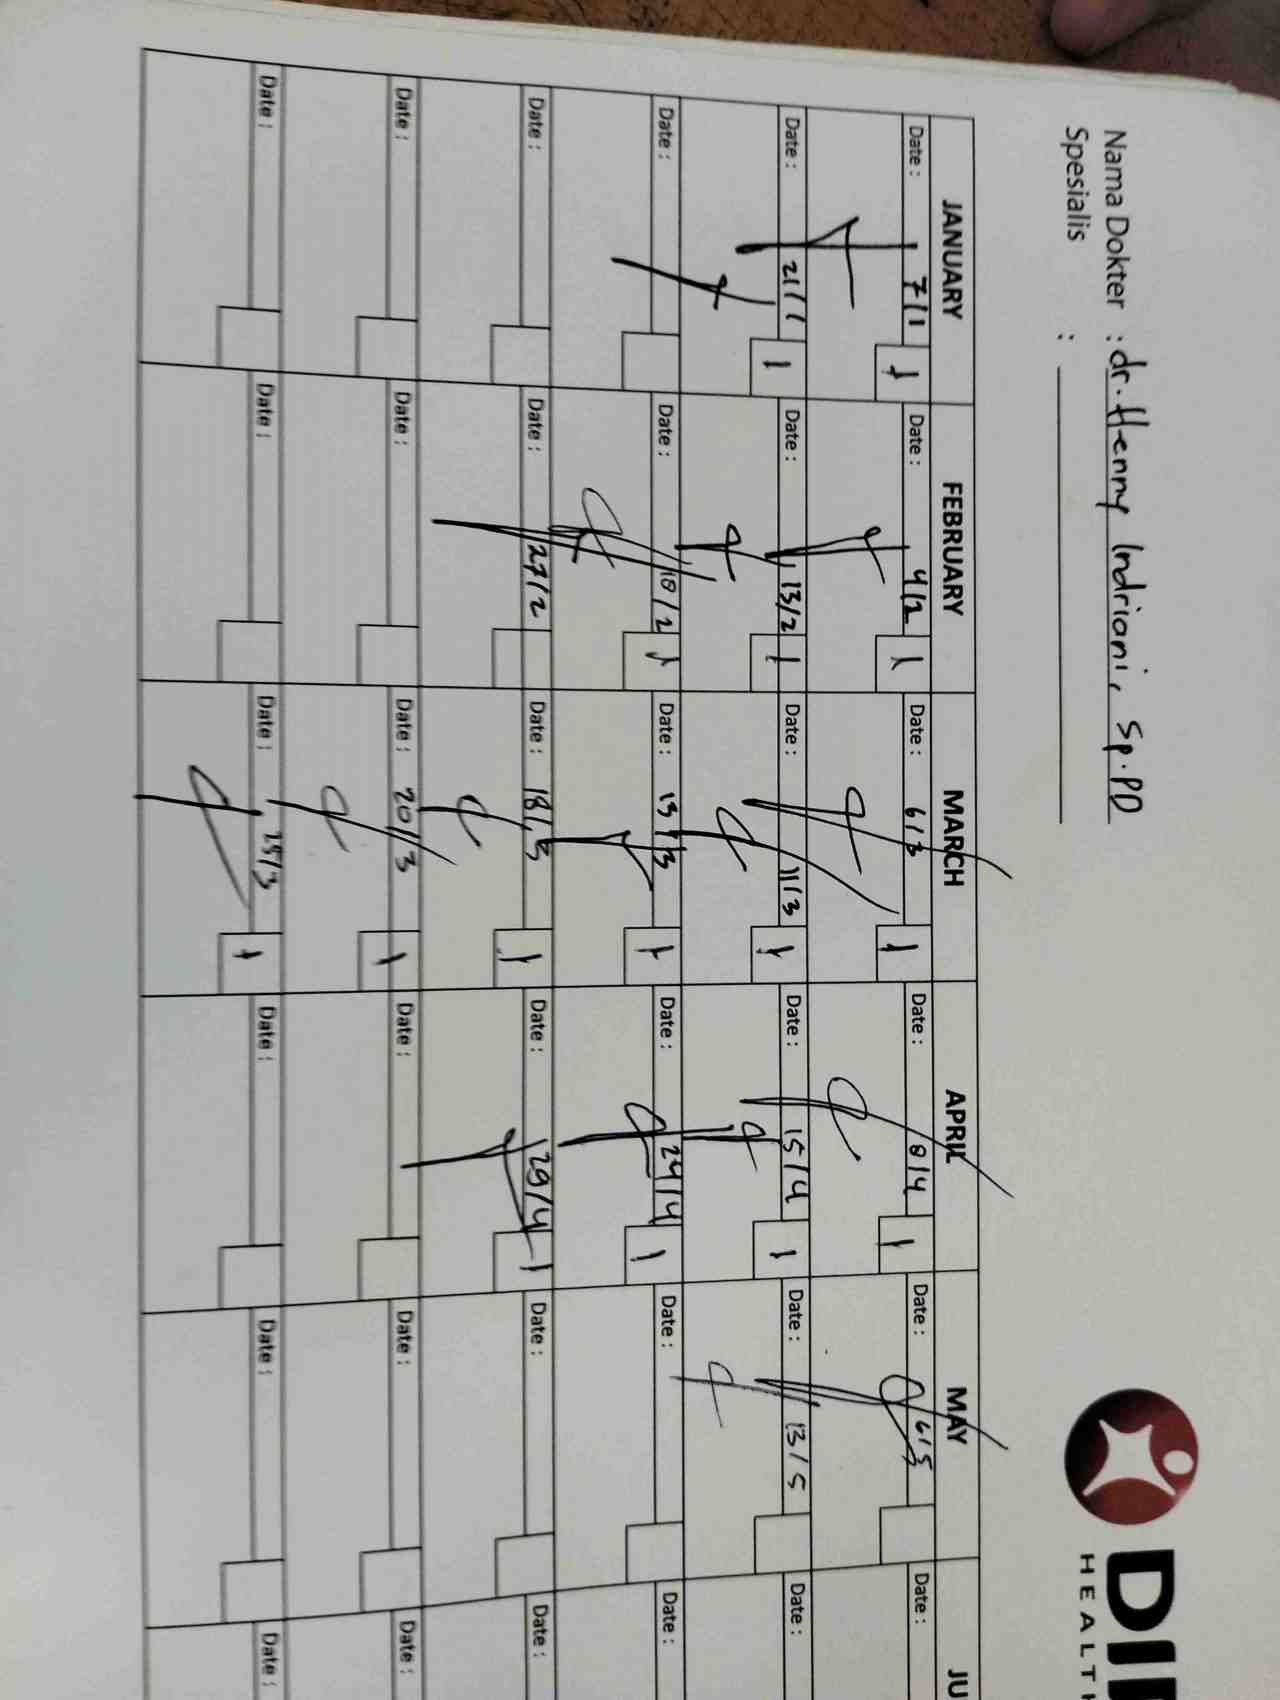 DI
HEALTH
Nama Dokter : dr. Henny Indriani, Sp.PD
Spesialis :
JANUARY FEBRUARY MARCH APRIL MAY JU
Date : 7/1 1 Date : 4/2 1 Date : 6/3 1 Date : 8/4 1 Date : 6/5 Date :
Date : 21/1 1 Date : 13/2 1 Date : 11/3 1 Date : 15/4 1 Date : 13/5 Date :
Date : Date : 18/2 1 Date : 13/3 1 Date : 24/4 1 Date : Date :
Date : Date : 27/2 Date : 18/3 1 Date : 29/4 1 Date : Date :
Date : Date : Date : 20/3 1 Date : Date : Date :
Date : Date : Date : 25/3 1 Date : Date : Date :